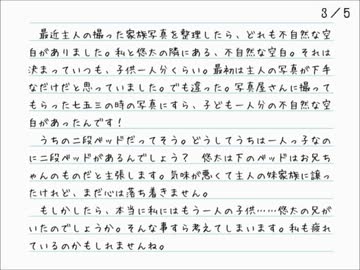 3/5
最近主人の撮った家族写真を整理したら、どれも不自然な空
白がありました。私と悠太の隣にある、不自然な空白。それは
決まっていつも、子供一人分くらい。最初は主人の写真が下手
なだけだと思っていました。でも違った。写真屋さんに撮って
もらった七五三の時の写真にすら、子ども一人分の不自然な空
白があったんです！
うちの二段ベッドだってそう。どうしてうちは一人っ子なの
に二段ベッドがあるんでしょう？　悠太は下のベッドはお兄ち
ゃんのものだと主張します。気味が悪くて主人の妹家族に譲っ
たけれど、まだ心は落ち着きません。
もしかしたら、本当に私にはもう一人の子供……悠太の兄が
いたのでしょうか。そんな事すら考えてしまいます。私も疲れ
ているのかもしれませんね。